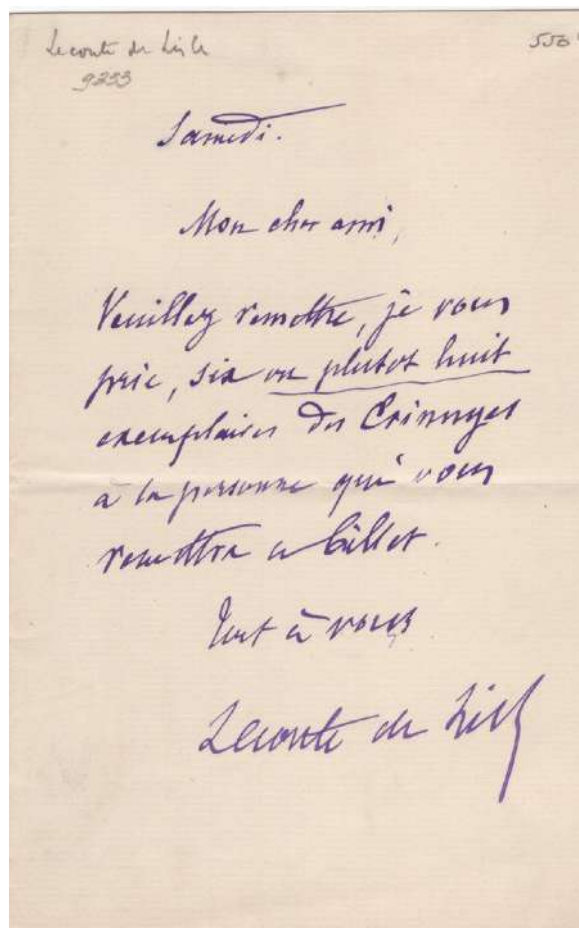 Leconte de Lisle
550
9233
Samedi.
Mon cher ami,
Veuillez remettre, je vous
prie, six ou plutot huit
exemplaires des Erinnyes
à la personne qui vous
remettra ce billet.
Tout à vous
Leconte de Lisle